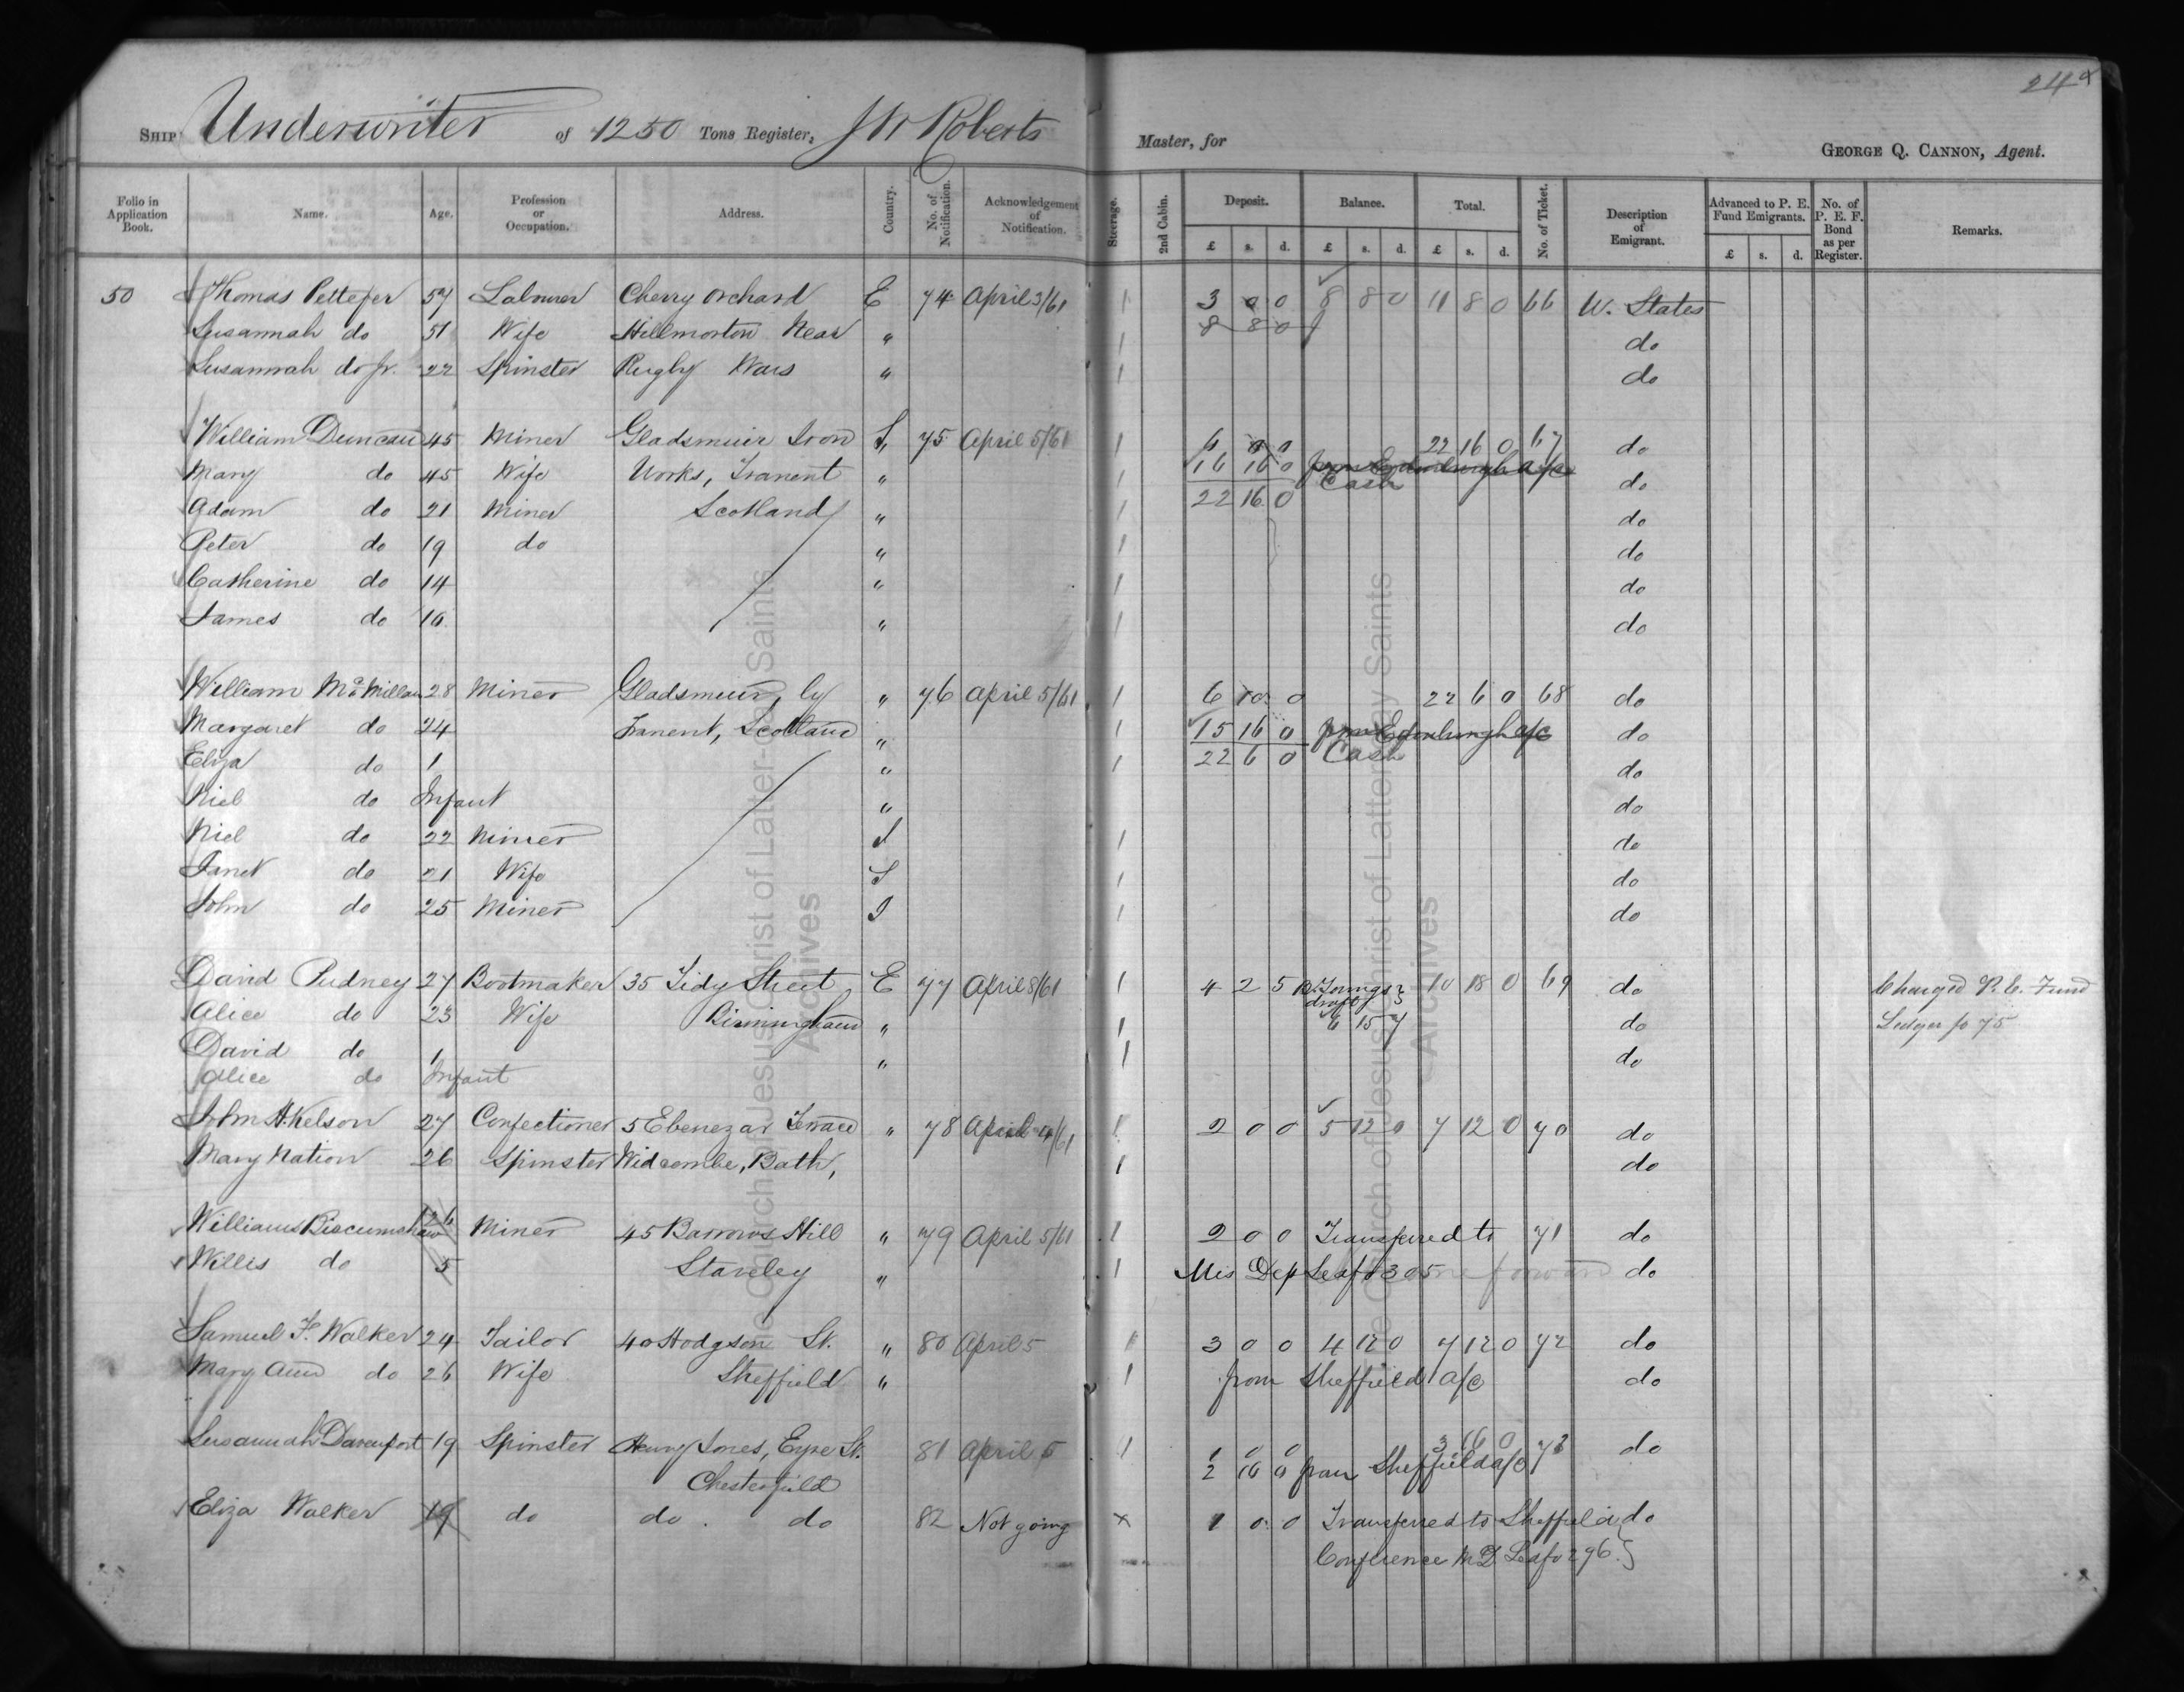 24a
SHIP Underwriter of 1250 Tons Register, J W Roberts Master, for GEORGE Q. CANNON, Agent.
Folio in Application Book. Name. Age. Profession or Occupation. Address. Country. No. of Notification. Acknowledgement of Notification. Steerage. 2nd Cabin. Deposit. Balance. Total. No. of Ticket. Description of Emigrant. Advanced to P. E. Fund Emigrants. No. of P. E. F. Bond as per Register. Remarks.
£ s. d. £ s. d. £ s. d. £ s. d.
50 Thomas Pettefer 57 Labourer Cherry Orchard E 74 April 3/61 1 3 0 0 8 8 0 11 8 0 66 U. States
Susannah do 51 Wife Hillmorton Near " 1 8 8 0 do
Susannah do jr. 22 Spinster Rugby Wars " 1 do
William Duncan 45 Miner Gladsmuir Iron S, 75 April 5/61 1 6 0 0 22 16 0 67 do
Mary do 45 Wife Works, Tranent " 1 16 16 0 from Edinburgh a/c Cash do
Adam do 21 Miner Scotland " 1 22 16 0 do
Peter do 19 do " 1 do
Catherine do 14 " 1 do
James do 10 " 1 do
William McMillan 28 Miner Gladsmuir, by " 76 April 5/61 1 6 10 0 22 6 0 68 do
Margaret do 24 Tranent, Scotland " 1 15 16 0 from Edinburgh a/c do
Eliza do 1 " 1 22 6 0 Cash do
Niel do Infant " do
Niel do 22 Miner S 1 do
Janet do 21 Wife S 1 do
John do 25 Miner S 1 do
David Pudney 27 Bootmaker 35 Tidy Street E 77 April 8/61 1 4 2 5 B. Youngs draft 10 18 0 69 do Charged P. E. Fund
Alice do 23 Wife Birmingham " 1 6 15 7 do Ledger fo 75
David do 1 " 1 do
Alice do Infant
John H. Kelson 27 Confectioner 5 Ebenezar Terrace " 78 April 4/61 1 2 0 0 5 12 0 7 12 0 70 do
Mary Nation 26 Spinster Widcombe, Bath, 1 do
William Biscumshaw 26 Miner 45 Barrows Hill " 79 April 5/61 1 2 0 0 Transferred to 71 do
Willis do 5 Staveley " 1 Mis Dep Leafo 305 forward do
Samuel F. Walker 24 Tailor 40 Hodgson St. " 80 April 5 1 3 0 0 4 12 0 7 12 0 72 do
Mary Ann do 26 Wife Sheffield " 1 from Sheffield a/c do
Susannah Davenport 19 Spinster Henry Jones, Eyre St. 81 April 5 1 1 0 0 3 16 0 73 do
Chesterfield 2 16 0 from Sheffield a/c
Eliza Walker 19 do do do 82 Not going x 1 0 0 Transferred to Sheffield do
Conference M D Leafo 296.
The Church of Jesus Christ of Latter-day Saints
Archives
The Church of Jesus Christ of Latter-day Saints
Archives